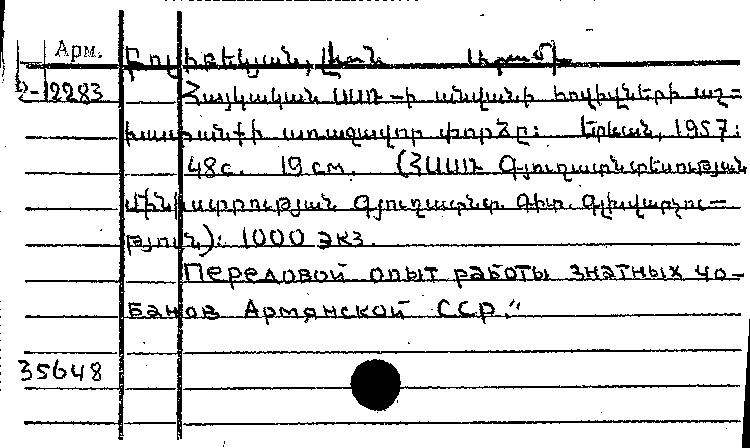 Арм. Արամի
2-12283 Հայկական ՍՍՌ-ի անվանի հովիվների աշ-
խատանքի առաջավոր փորձը: Երևան, 1957:
48с. 19см. (ՀՍՍՌ Գյուղատնտեսության
Մինիստրության Գյուղատնտ. Գիտ. Գլխավարչու-
թյուն): 1000 экз.
Передовой опыт работы знатных чо-
банов Армянской ССР."
35648